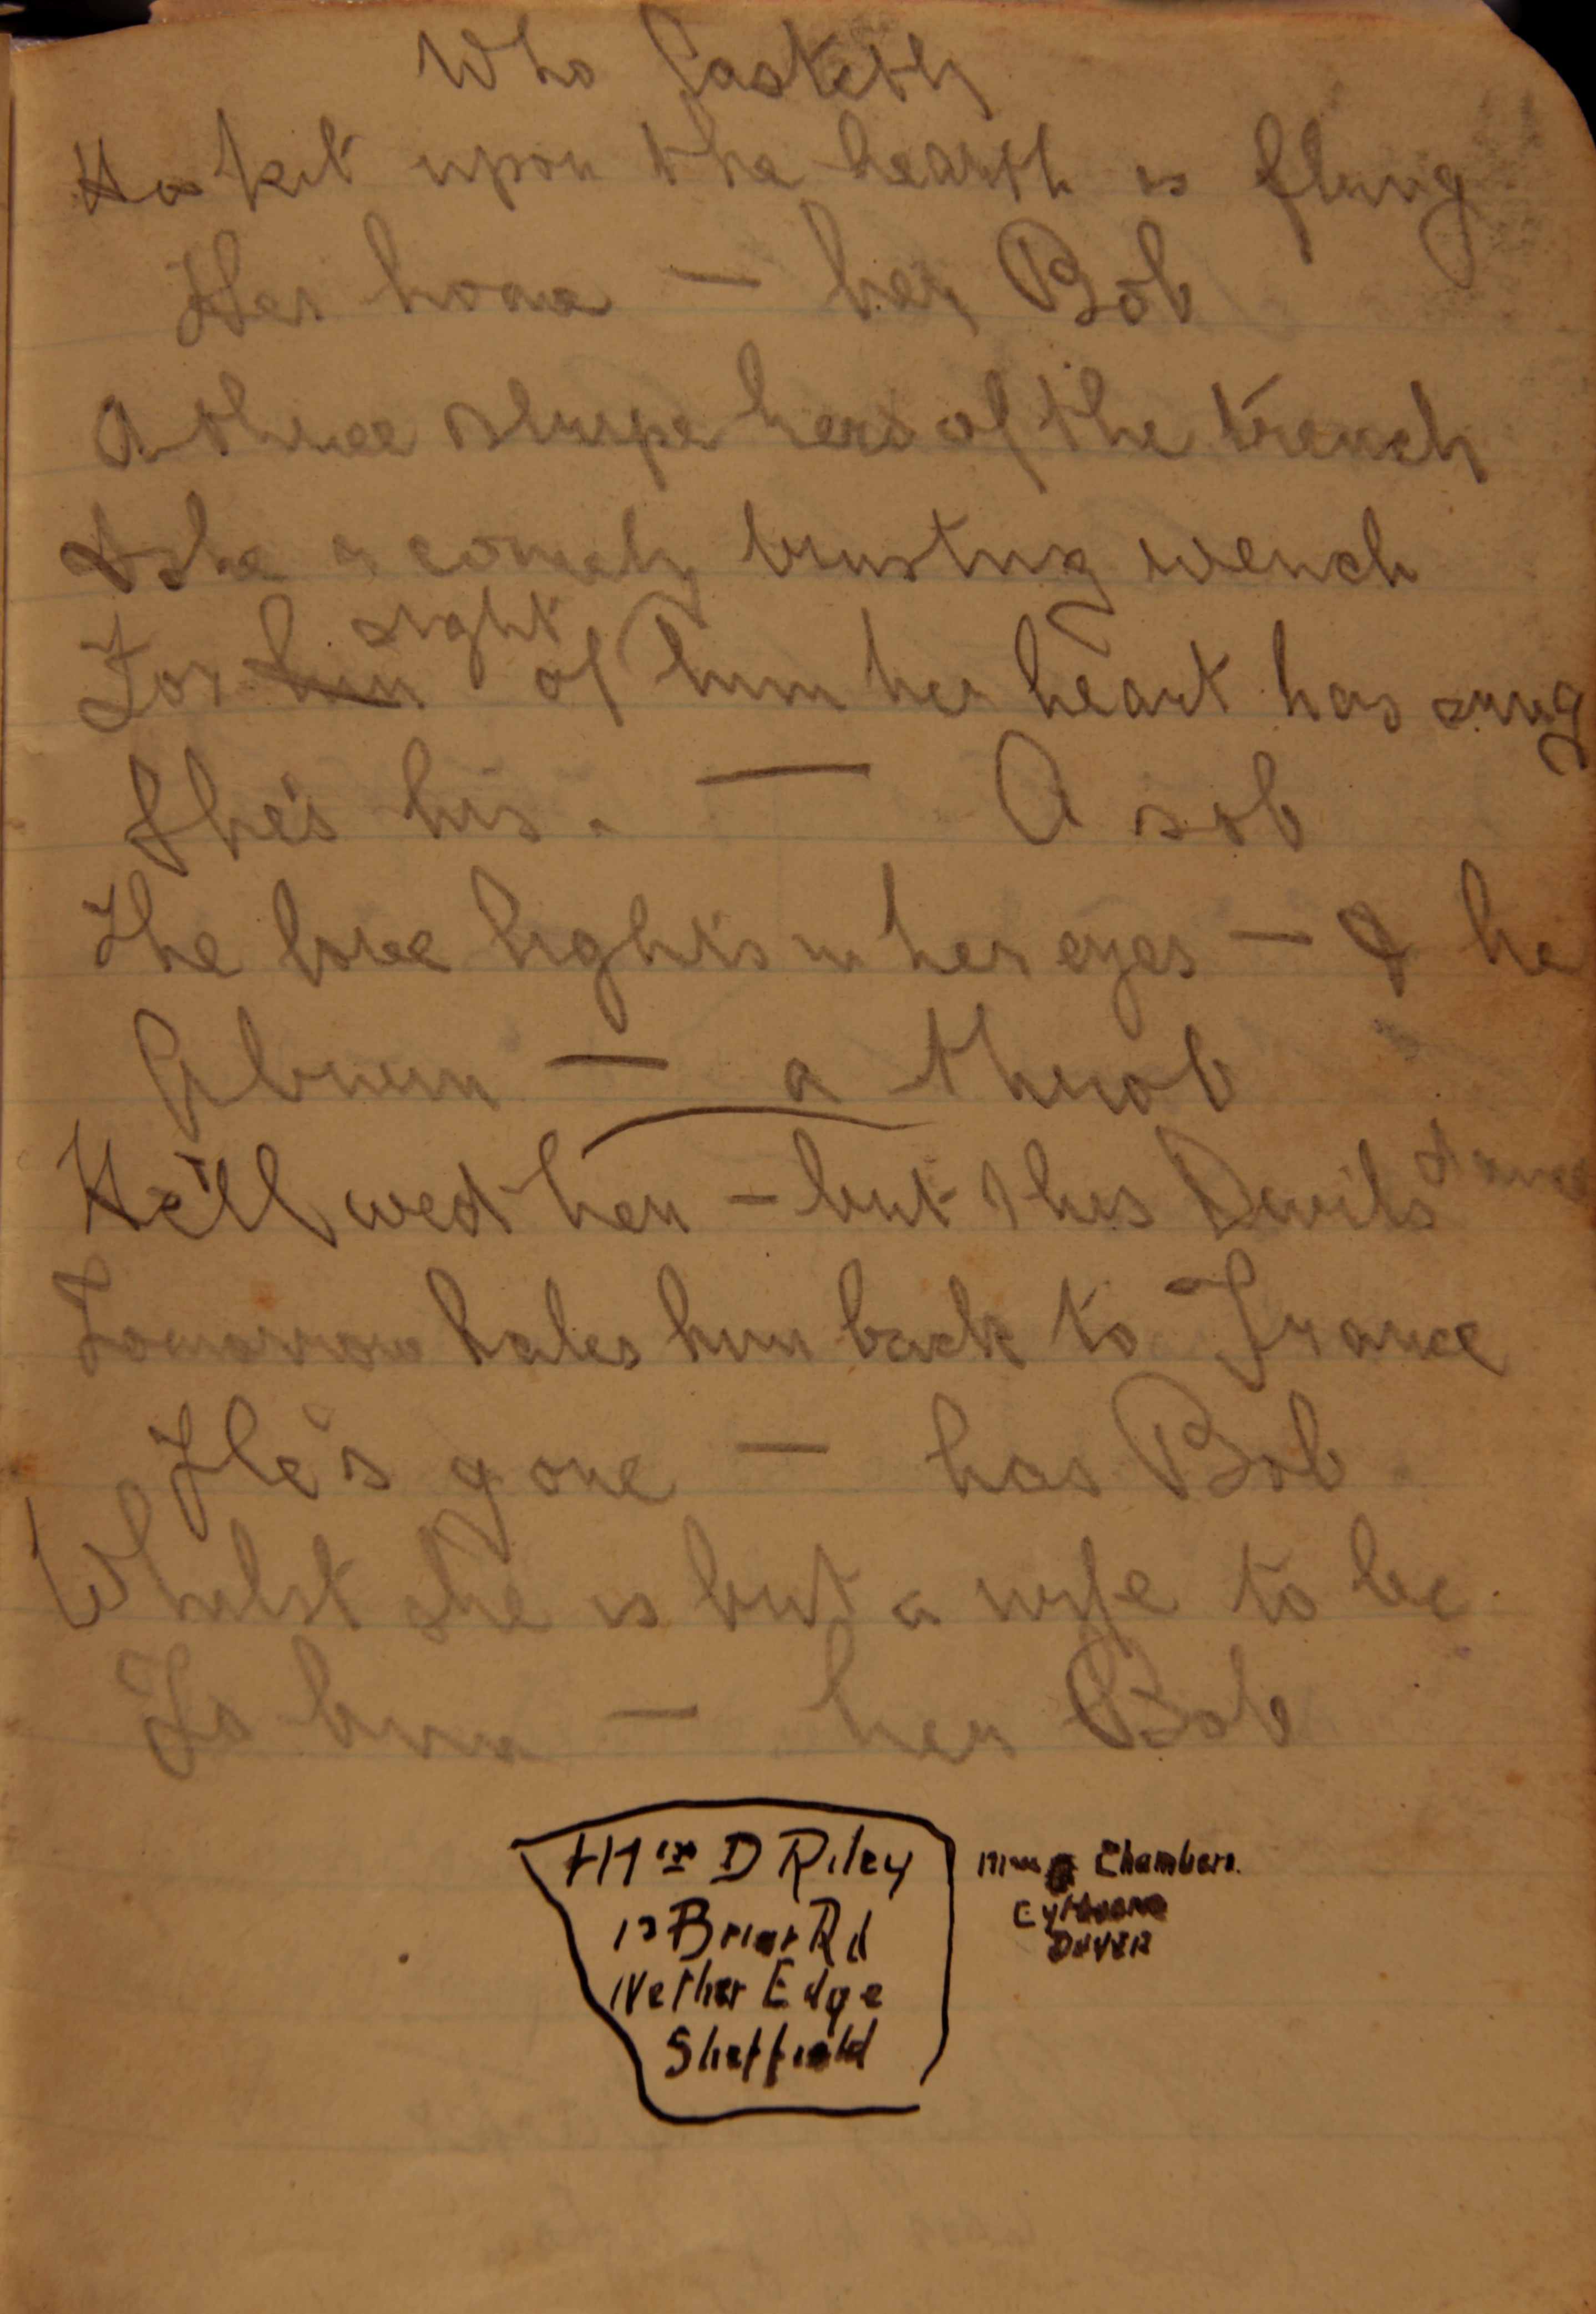 Who
His kit upon the hearth is flung
Her home — her Bob
A three stripe hero of the trench
& she a comely trusting wench
For him sight of him her heart has sung
She's his. — A sob
The love lights in her eyes — & he
A brum — a throb
He'll wed her — but this Devils dance
Tomorrow hales him back to France
He's gone — has Bob
Whilst she is but a wife to be
To him — her Bob
D Riley
13 Briar Rd
Nether Edge
Sheffield
Chambers.
DOVER